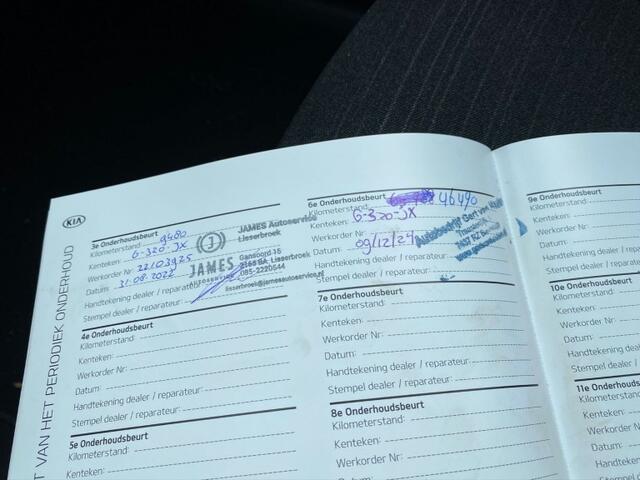 KIA
T VAN HET PERIODIEK ONDERHOUD
3e Onderhoudsbeurt
Kilometerstand: 9480
Kenteken: G-320-JX
Werkorder Nr: 22103925
Datum: 31-08-2022
Handtekening dealer / reparateur:
Stempel dealer / reparateur:
JAMES
AUTOSERVICE
JAMES Autoservice
Lisserbroek
Gansoord 15
2165 BA Lisserbroek
085-2220544
lisserbroek@jamesautoservice.nl
4e Onderhoudsbeurt
Kilometerstand:
Kenteken:
Werkorder Nr:
Datum:
Handtekening dealer / reparateur:
Stempel dealer / reparateur:
5e Onderhoudsbeurt
Kilometerstand:
Kenteken:
6e Onderhoudsbeurt
Kilometerstand: 46490
Kenteken: G-320-JX
Werkorder Nr:
Datum: 09/12/24
Handtekening dealer / reparateur:
Stempel dealer / reparateur:
Autobedrijf Gert van
7e Onderhoudsbeurt
Kilometerstand:
Kenteken:
Werkorder Nr:
Datum:
Handtekening dealer / reparateur:
Stempel dealer / reparateur:
8e Onderhoudsbeurt
Kilometerstand:
Kenteken:
Werkorder Nr:
9e Onderhoudsbeurt
Kilometerstand:
Kenteken:
Werkorder Nr:
Datum:
Handtekening
Stempel dealer
10e Onderhoudsbeurt
Kilometerstand:
Kenteken:
Werkorder Nr:
Datum:
Handtekening
Stempel dealer
11e Onderhoudsbeurt
Kilometerstand:
Kenteken:
Werkorder Nr:
Datum: